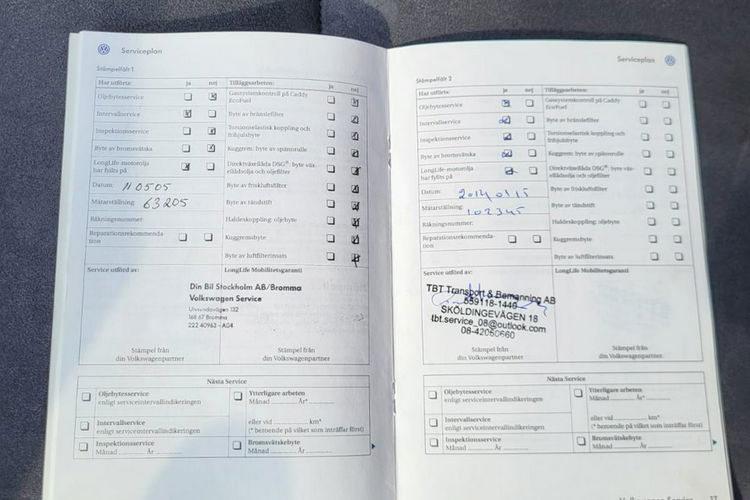 Serviceplan
Stämpelfält 1
Har utförts: ja nej
Oljebytesservice
Intervallservice
Inspektionsservice
Byte av bromsvätska
LongLife-motorolja
har fyllts på
Datum: 110505
Mätarställning: 63205
Räkningsnummer:
Reparationsrekommenda-
tion
Tilläggsarbeten: ja nej
Gassystemkontroll på Caddy
EcoFuel
Byte av bränslefilter
Torsionselastisk koppling och
frihjulsbyte
Kuggrem: byte av spännrulle
Direktväxellåda DSG®: byte väx-
ellådsolja och oljefilter
Byte av friskluftsfilter
Byte av tändstift
Haldexkoppling: oljebyte
Kuggremsbyte
Byte av luftfilterinsats
Service utförd av:
LongLife Mobilitetsgaranti
Din Bil Stockholm AB/Bromma
Volkswagen Service
Ulvsundavägen 132
168 67 Bromma
222 40963 - A04
Stämpel från
din Volkswagenpartner
Stämpel från
din Volkswagenpartner
Nästa Service
Oljebytesservice
enligt serviceintervallindikeringen
Intervallservice
enligt serviceintervallindikeringen
Inspektionsservice
Månad År
Ytterligare arbeten
Månad År*
eller vid km*
(* beroende på vilket som inträffar först)
Bromsvätskebyte
Månad År
Serviceplan
Stämpelfält 2
Har utförts: ja nej
Oljebytesservice
Intervallservice
Inspektionsservice
Byte av bromsvätska
LongLife-motorolja
har fyllts på
Datum: 20140115
Mätarställning: 102345
Räkningsnummer:
Reparationsrekommenda-
tion
Tilläggsarbeten: ja nej
Gassystemkontroll på Caddy
EcoFuel
Byte av bränslefilter
Torsionselastisk koppling och
frihjulsbyte
Kuggrem: byte av spännrulle
Direktväxellåda DSG®: byte väx-
ellådsolja och oljefilter
Byte av friskluftsfilter
Byte av tändstift
Haldexkoppling: oljebyte
Kuggremsbyte
Byte av luftfilterinsats
Service utförd av:
LongLife Mobilitetsgaranti
TBT Transport & Bemanning AB
559118-1446
SKÖLDINGEVÄGEN 18
tbt.service_08@outlook.com
08-42060660
Stämpel från
din Volkswagenpartner
Stämpel från
din Volkswagenpartner
Nästa Service
Oljebytesservice
enligt serviceintervallindikeringen
Intervallservice
enligt serviceintervallindikeringen
Inspektionsservice
Månad År
Ytterligare arbeten
Månad År*
eller vid km*
(* beroende på vilket som inträffar först)
Bromsvätskebyte
Månad År